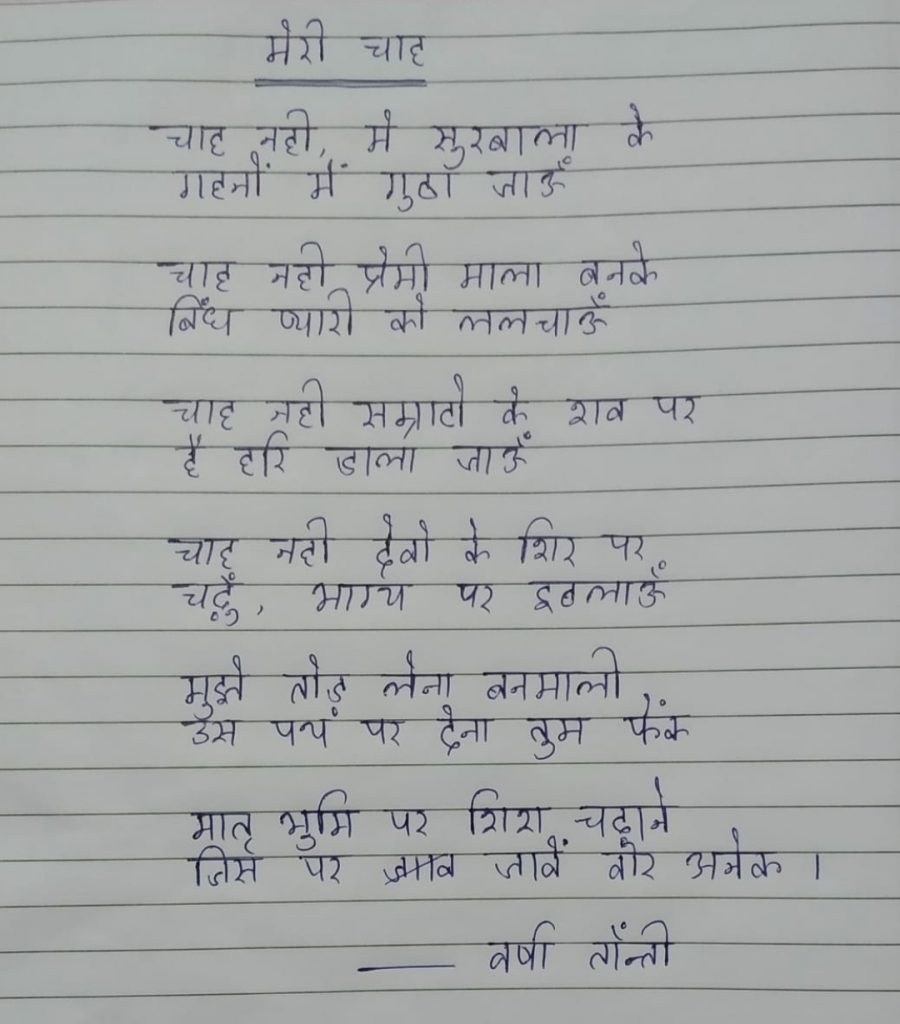 मेरी चाह
चाह नही, मे सुरबाला के
गहनों में गुठा जाऊँ
चाह नही प्रेमी माला बनके
बिँध प्यारी को ललचाऊँ
चाह नही सम्राटो के शव पर
है हरि डाला जाऊँ
चाह नही देवो के शिर पर
चढूँ, भाग्य पर इठलाऊँ
मुझे तोड़ लेना बनमाली
उस पथ पर देना तुम फेंक
मातृ भुमि पर शिश चढ़ाने
जिस पर जावें वीर अनेक ।
— वर्षा ताँन्ती